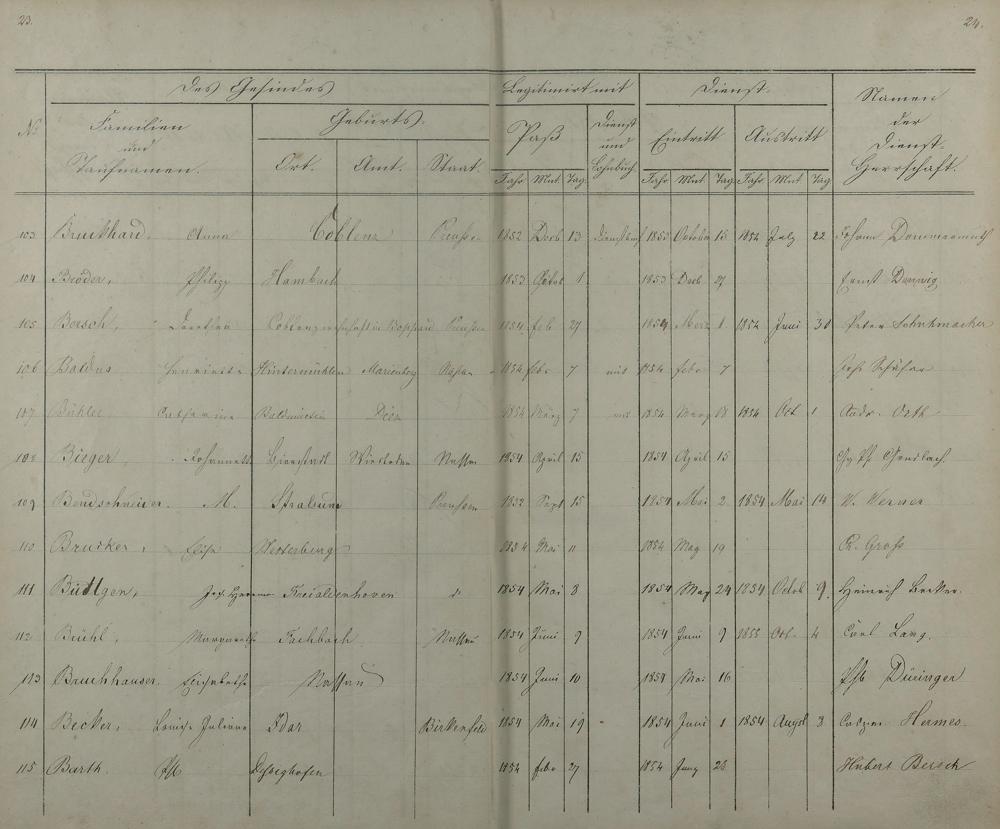 23. 24.
Des Gesindes Legitimirt mit Dienst- Namen
No Familien Geburts- Paß Dienst Eintritt Austritt der
und und Dienst-
Taufnamen. Ort. Amt. Staat. Lohnbuch Herrschaft.
Jahr Mnt. Tag Jahr Mnt. Tag Jahr Mnt Tag
103 Bruckhard, Anna Coblenz Preussen 1852 Decb 13 Dienstbuch 1853 October 15 1854 July 22 Johann Dommermuth
104 Broder, Philipp Hambach 1853 Octob 1 1853 Decb 27 Ernst
105 Borsch, Dorothea Boppard Preussen 1854 feb 27 1854 Merz 1 1854 Juni 30 Peter Schuhmacher
106 Baldus Henriette Hintermühlen Marienberg Nassau 1854 febr 7 mit 1854 febr 7 Joh Schäfer
107 Bühler Catharina Balduinstein Diez 1854 März 7 mit 1854 März 18 1854 Oct 1 Andr. Orth
108 Bieger, Johannette Bierstadt Wiesbaden Nassau 1854 April 15 1854 April 15
109 M. Stralsund Preussen 1852 Sept 15 1854 Mai 2 1854 Mai 14 W. Werner
110 Brucker, Elise Westerburg 1854 Mai 11 1854 May 19 Groß
111 Büttgen, Jos. Freialdenhoven " 1854 Mai 8 1854 May 24 1854 Octob 9. Heinrich Becker.
112 Bühl, Margarethe Fachbach Nassau 1854 Juni 9 1854 Juni 9 1855 Oct. 4 Carl Lang.
113 Bruchhauser. Elisabetha Nassau 1854 Juni 10 1854 Mai 16 Düringer
114 Becker, Louise Juliane Idar Birkenfeld 1854 Mai 19 1854 Juni 1 1854 Augst 3 Caspar Hermes
115 Barth. 1854 febr 27 1854 Juny 23 Hubert Bersch